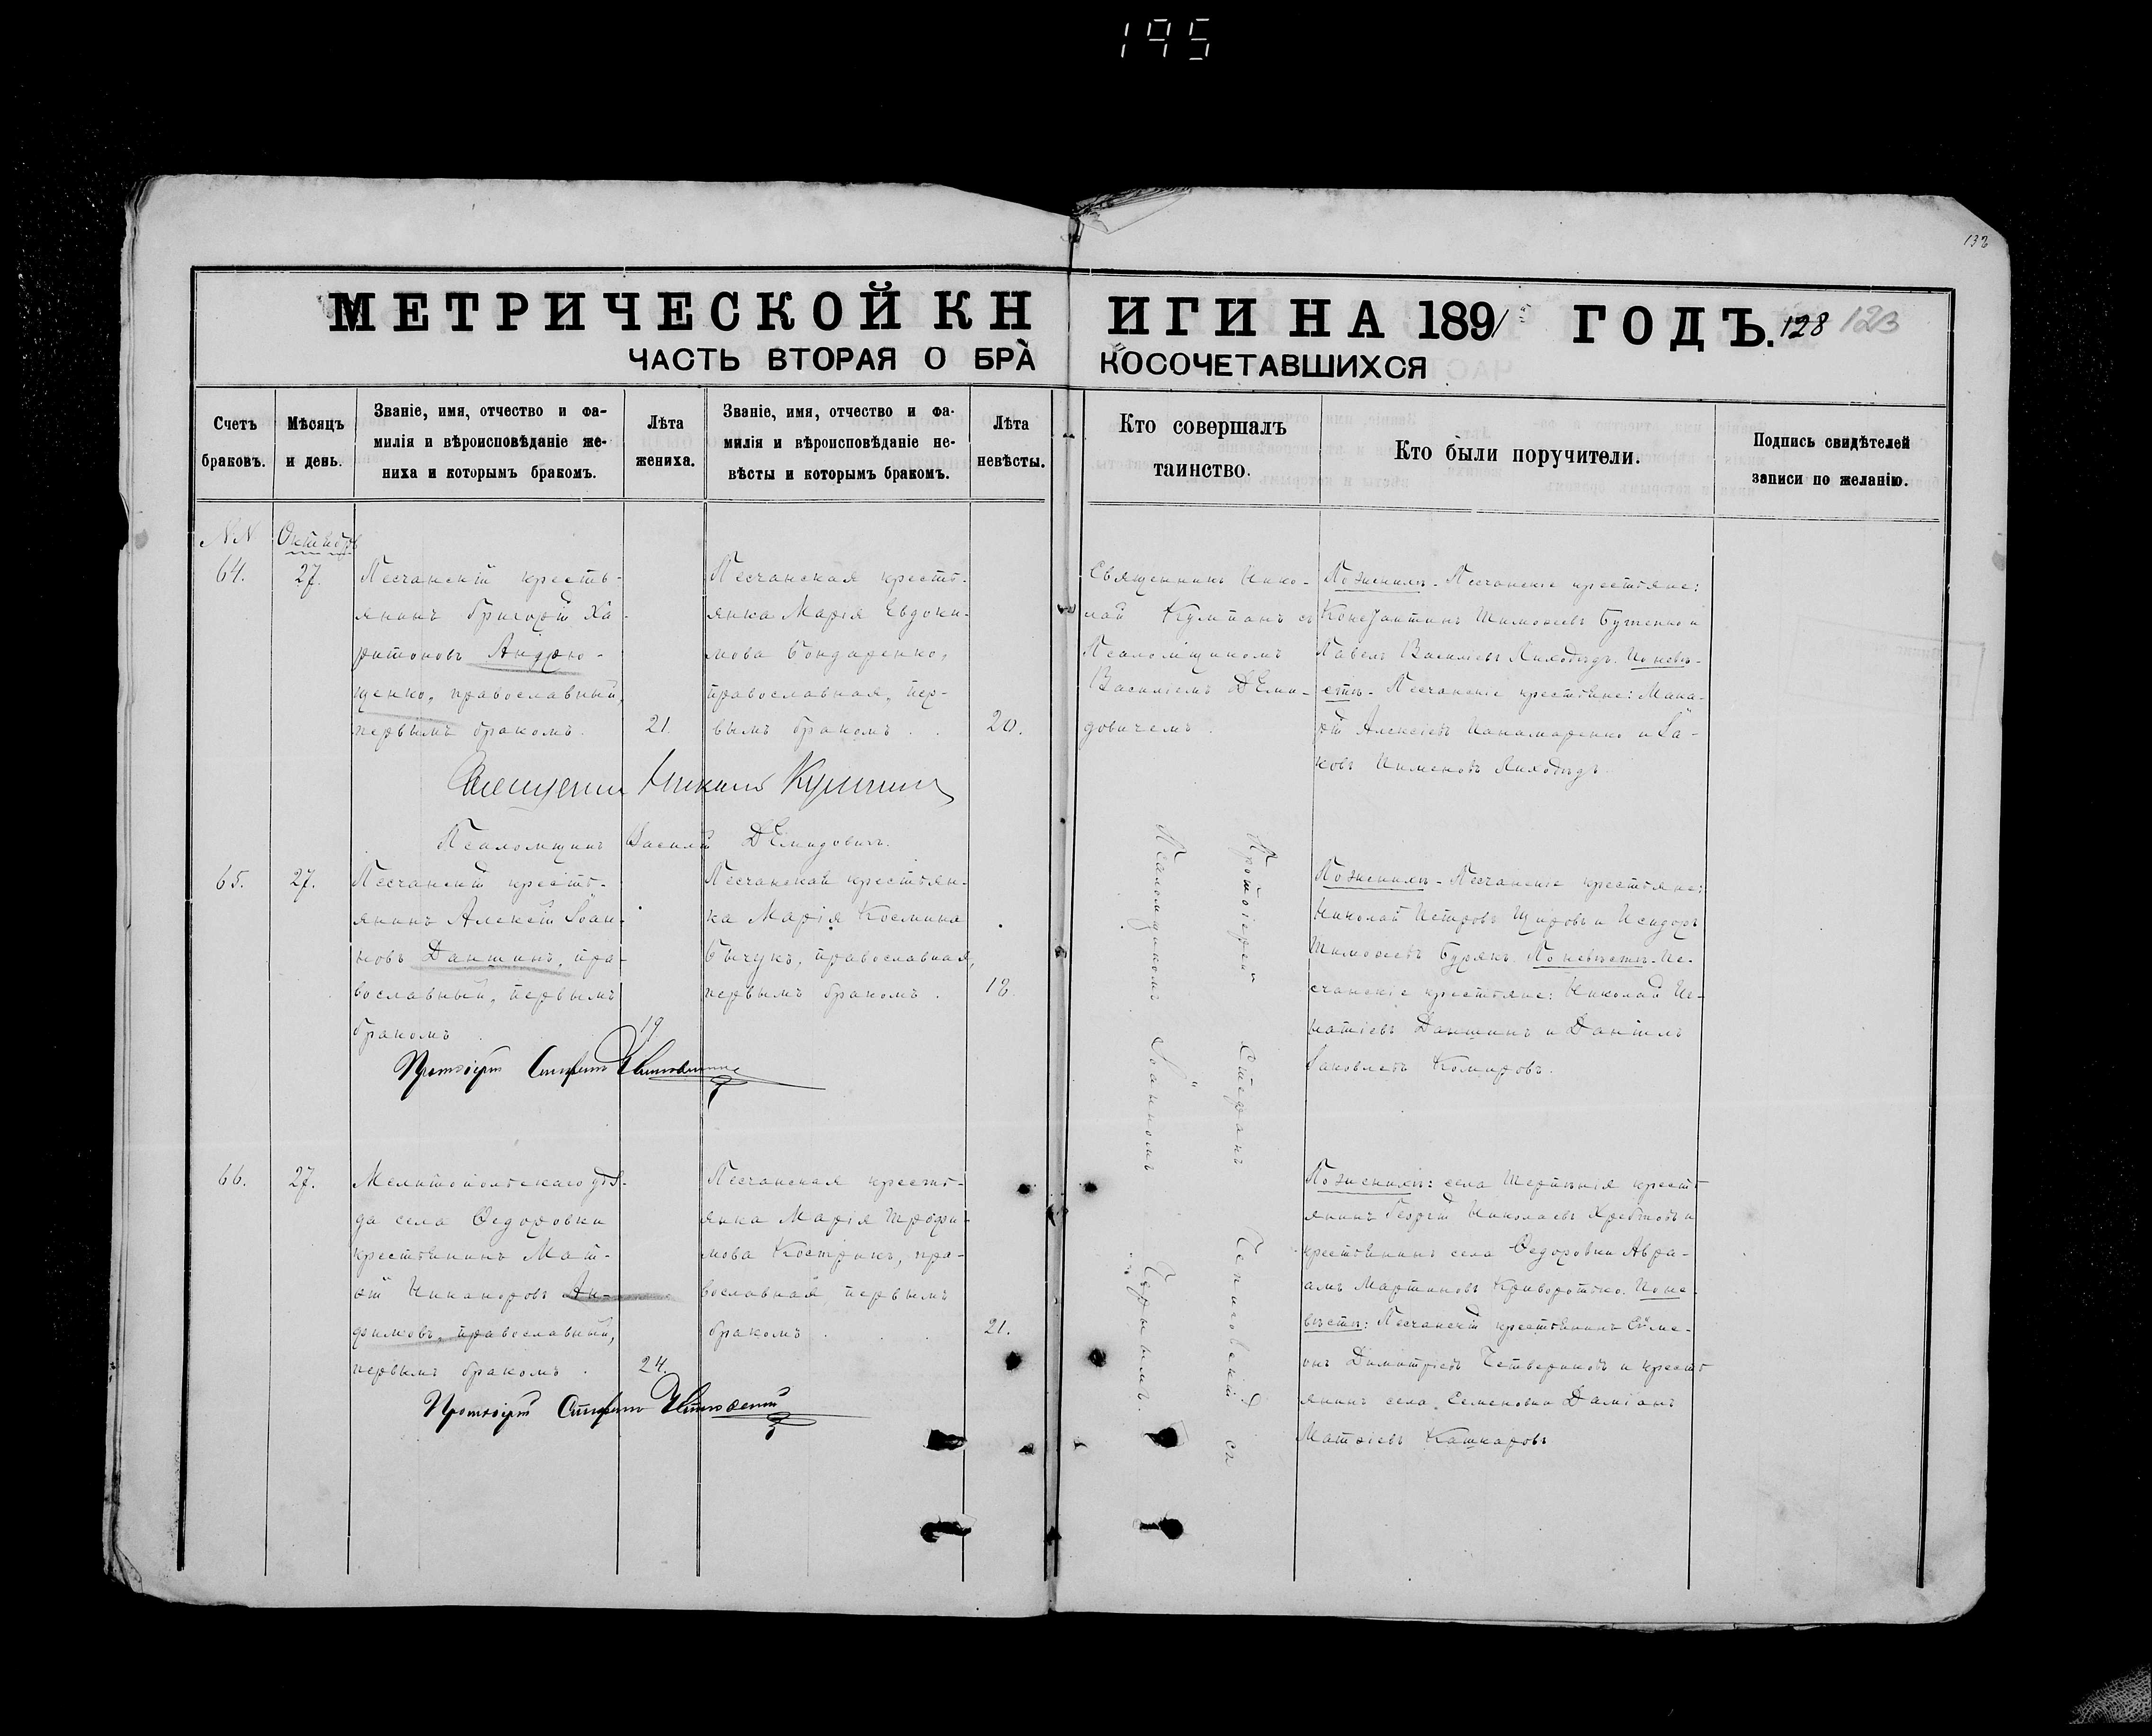 195
132
МЕТРИЧЕСКОЙ КНИГИ НА 1891 ГОДЪ. 128 123
ЧАСТЬ ВТОРАЯ О БРАКОСОЧЕТАВШИХСЯ
Счетъ браковъ.
Мѣсяцъ и день.
Званіе, имя, отчество и фа-
милія и вѣроисповѣданіе же-
ниха и которымъ бракомъ.
Лѣта жениха.
Званіе, имя, отчество и фа-
милія и вѣроисповѣданіе не-
вѣсты и которымъ бракомъ.
Лѣта невѣсты.
Кто совершалъ
таинство.
Кто были поручители.
Подпись свидѣтелей
записи по желанію.
NN Октябрь
64. 27.
Песчанскій кресть-
янинъ Григорій Ха-
ритоновъ Андрю-
щенко, православный,
первымъ бракомъ.
21.
Песчанская кресть-
янка Марія Евдоки-
мова Бондаренко,
православная, пер-
вымъ бракомъ.
20.
Священникъ Нико-
лай съ
Псаломщикомъ
Василіемъ Деми-
довичемъ.
По женихѣ - Песчанскіе крестьяне:
Константинъ Тимоѳеевъ Бутенко и
Павелъ Василіевъ Лиходѣдъ. По невѣ-
стѣ - Песчанскіе крестьяне: Мака-
рій Алексіевъ Панамаренко и Іа-
ковъ Пименовъ Лиходѣдъ.
Священникъ Николай
Псаломщикъ Василій Демидовичъ.
65. 27.
Песчанскій кресть-
янинъ Алексій Іоан-
новъ Даншинъ, пра-
вославный, первымъ
бракомъ
19
Песчанская крестьян-
ка Марія Космина
Бычукъ, православная,
первымъ бракомъ.
18.
По женихѣ - Песчанскіе крестьяне:
Николай Петровъ Щировъ и Исидоръ
Тимоѳеевъ Бурякъ. По невѣстѣ - Пе-
счанскіе крестьяне: Николай Иг-
натіевъ Даншинъ и Даніилъ
Іаковлевъ Комировъ.
Протоіерей Стефанъ
66. 27.
Мелитопольскаго уѣз-
да села Ѳедоровки
крестьянинъ Мат-
ѳій Никаноровъ Ан-
фимовъ, православный,
первымъ бракомъ.
24.
Песчанская кресть-
янка Марія Трофи-
мова Кострикъ, пра-
вославная первымъ
бракомъ.
21.
Протоіерей Стефанъ
съ
Псаломщикомъ Іоанномъ
По женихѣ: села Терпѣнія кресть
янинъ Георгій Николаевъ Хребтовъ и
крестьянинъ села Ѳедоровки Авра-
амъ Мартиновъ Криворотько. По не-
вѣстѣ: Песчанскій крестьянинъ Симе-
онъ Димитріевъ Четвериковъ и кресть
янинъ села Семеновки Даміанъ
Матѳіевъ Кашкаровъ
Протоіерей Стефанъ